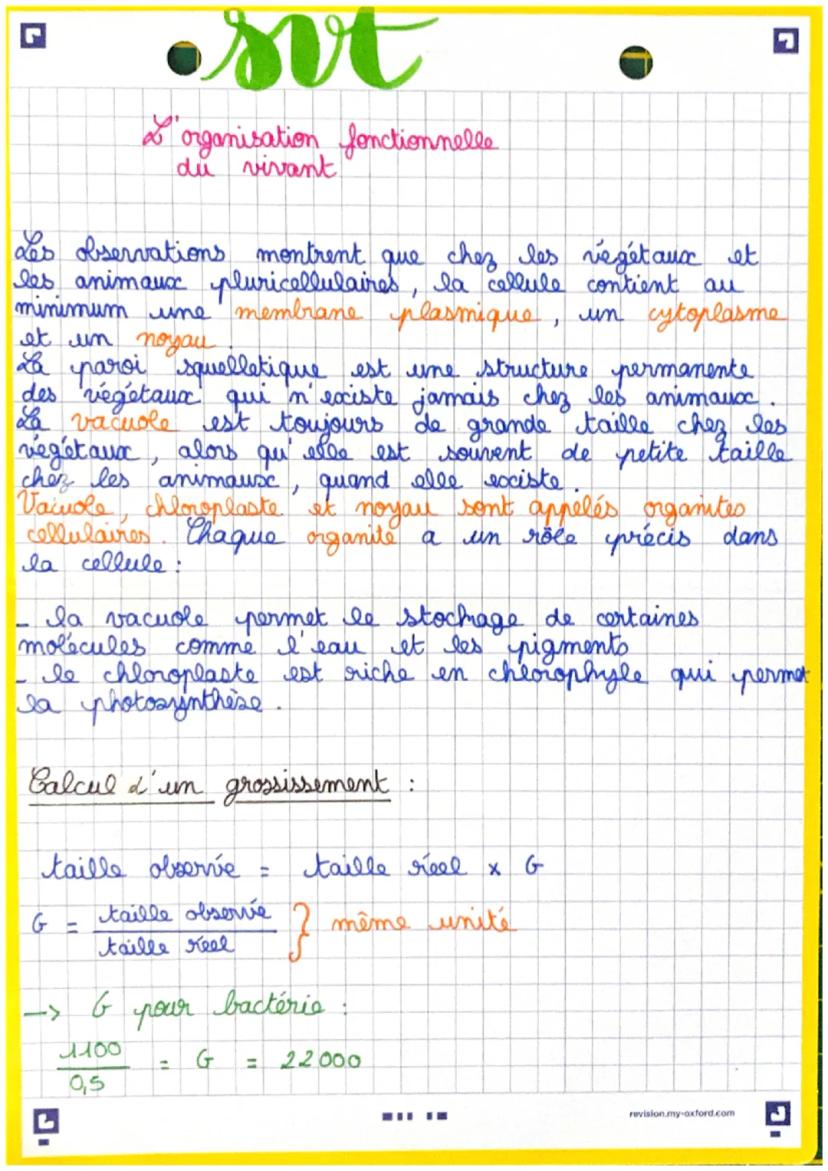 svt
L'organisation fonctionnelle
du vivant
Les observations montrent que chez les végétaux et
les animaux pluricellulaires, la cellule contient au
minimum une membrane plasmique, un cytoplasme
et un noyau.
La paroi squelletique est une structure permanente
des végétaux qui n'existe jamais chez les animaux.
La vacuole est toujours de grande taille chez les
végétaux, alors qu'elle est souvent de petite taille
chez les animaux, quand elle existe.
Vacuole, chloroplaste et noyau sont appelés organites
cellulaires. Chaque organite a un rôle précis dans
la cellule :
- la vacuole permet le stockage de certaines
molécules comme l'eau et les pigments
- le chloroplaste est riche en chlorophyle qui permet
la photosynthèse.
Calcul d'un grossissement :
taille observée = taille réel x G
G = taille observée / taille réel } même unité
-> G pour bactérie :
1100 / 0,5 = G = 22000
revision.my-oxford.com